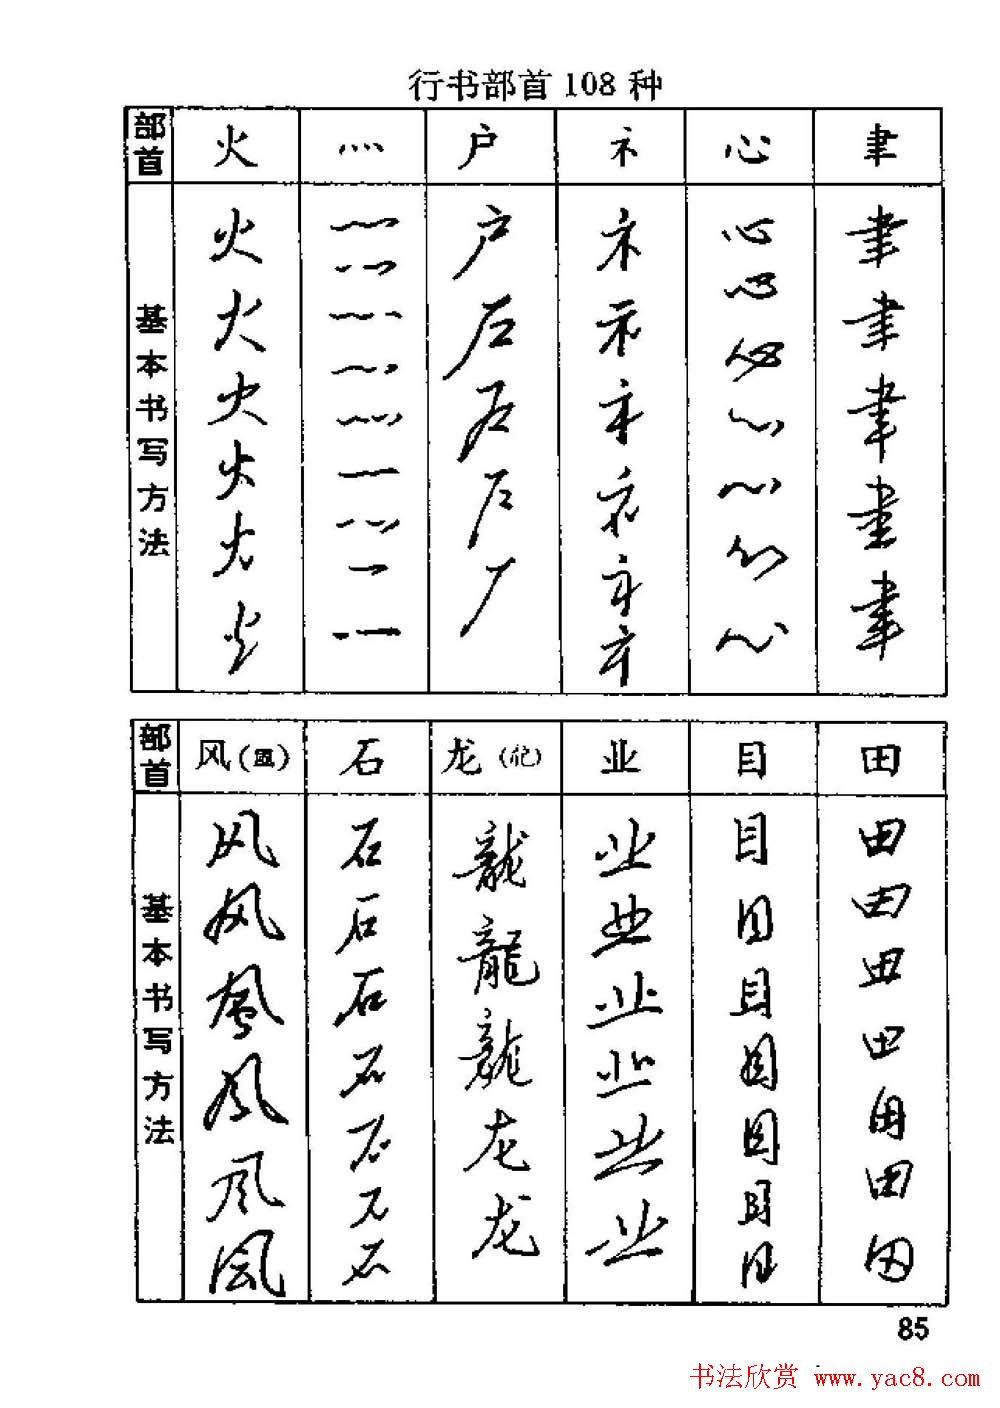 行书部首108种
部首 火 灬 户 礻 心 聿
基本书写方法
火火火火火火
灬灬灬灬灬灬灬灬灬
户户户户户
礻礻礻礻礻礻
心心心心心心心
聿聿聿聿聿
部首 风 石 龙 业 目 田
基本书写方法
风风风风风风
石石石石石石石
龍龍龍龙龙
业业业业业业
目目目目目目目
田田田田田田田
85
书法欣赏 www.yac8.com